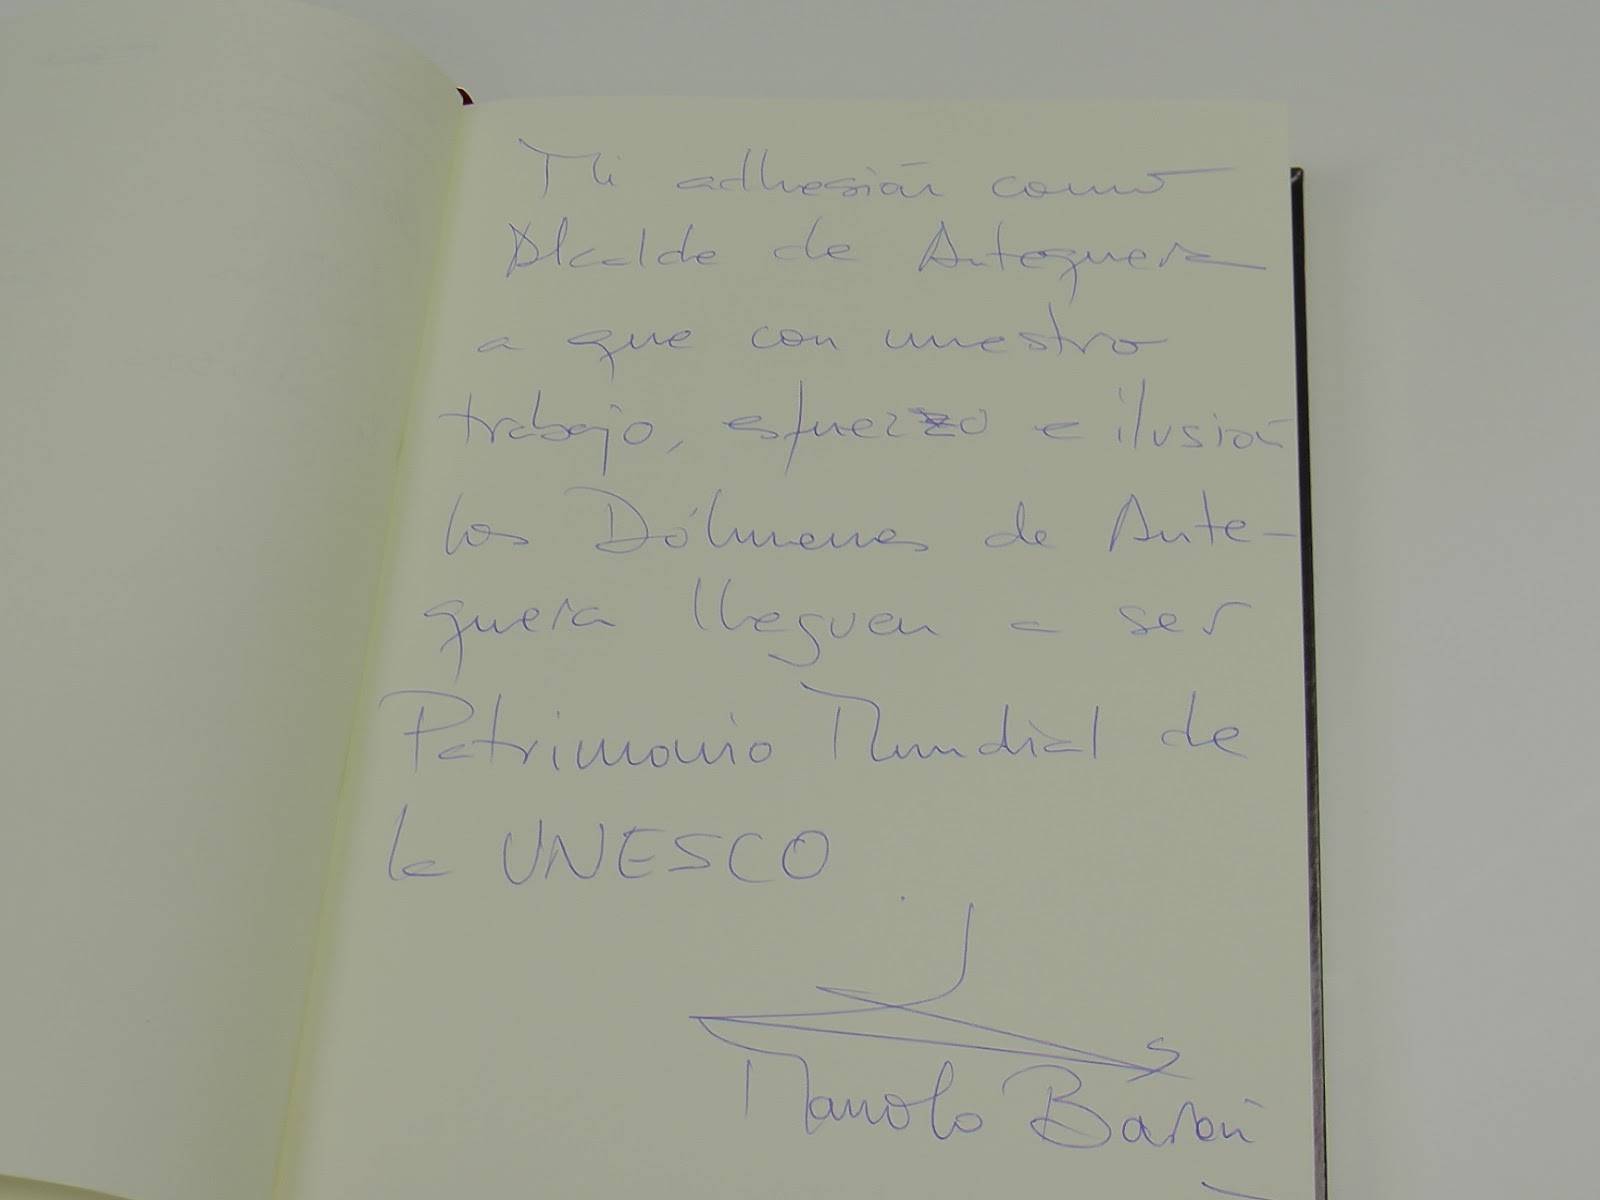 Mi adhesión como
Alcalde de Antequera
a que con nuestro
trabajo, esfuerzo e ilusión
los Dólmenes de Ante-
quera lleguen a ser
Patrimonio Mundial de
la UNESCO
Manolo Barón